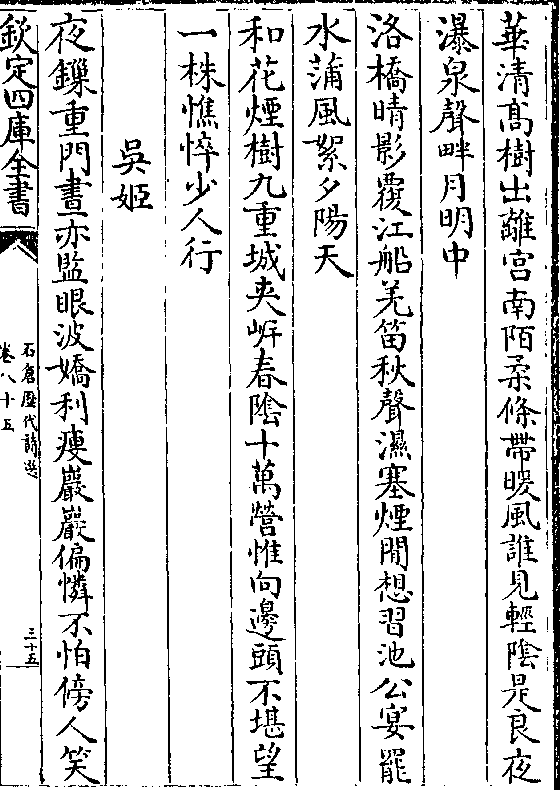 華清髙樹出離宫南陌柔條帶暖風誰見輕隂是良夜
瀑泉聲畔月明中
洛橋晴影覆江船羌笛秋聲濕塞煙閒想習池公宴罷
水蒲風絮夕陽天
和花煙樹九重城夾岍春隂十萬營惟向邊頭不堪望
一株憔悴少人行
吳姬
夜鏁重門晝亦監眼波嬌利瘦巖巖偏憐不怕傍人笑
欽定四庫全書
石倉歴代詩選
卷八十五
三十五